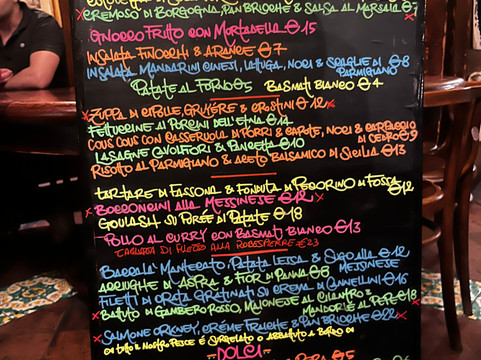 CREMOSO DI BORGOGNA, PAN BRIOCHE & SALSA AL MARSALA €7
GNOCCO FRITTO CON MORTADELLA €15
INSALATA FINOCCHI & ARANCE €7
INSALATA MANDARINI CINESI, LATTUGA, NOCI & SCAGLIE DI PARMIGIANO €8
PATATE AL FORNO €5 BASMATI BIANCO €4
ZUPPA DI CIPOLLE, GRUYÈRE & CROSTINI €12
FETTUCCINE AI PORCINI DELL'ETNA €14
COUS COUS CON CASSERUOLA DI PORRI & CAROTE, NOCI & CARPACCIO DI CEDRO €9
LASAGNE CAVOLFIORI & PANCETTA €10
RISOTTO AL PARMIGIANO & ACETO BALSAMICO DI SICILIA €13
TARTARE DI FASSONA & FONDUTA DI PECORINO DI FOSSA €12
BOCCONCINI ALLA MESSINESE €12
GOULASH SU PURÈE DI PATATE €18
POLLO AL CURRY CON BASMATI BIANCO €13
TAGLIATA DI FILETTO ALLA ROBESPIERRE €23
BACCALÀ MANTECATO, PATATA LESSA & SUGO ALLA MESSINESE €12
ACCIUGHE DI & FIOR DI PANNA €8
FILETTI DI ORATA GRATINATI SU CREMA DI CANNELLINI €16
BATTUTO DI GAMBERO ROSSO, MAIONESE AL CILANTRO & MANDORLE AL PEPE €18
SALMONE ORKNEY, CRÉME FRAICHE & PAN BRIOCHE €22
DI TUTTO IL NOSTRO PESCE È SURGELATO O ABBATTUTO A BORDO
DOLCI